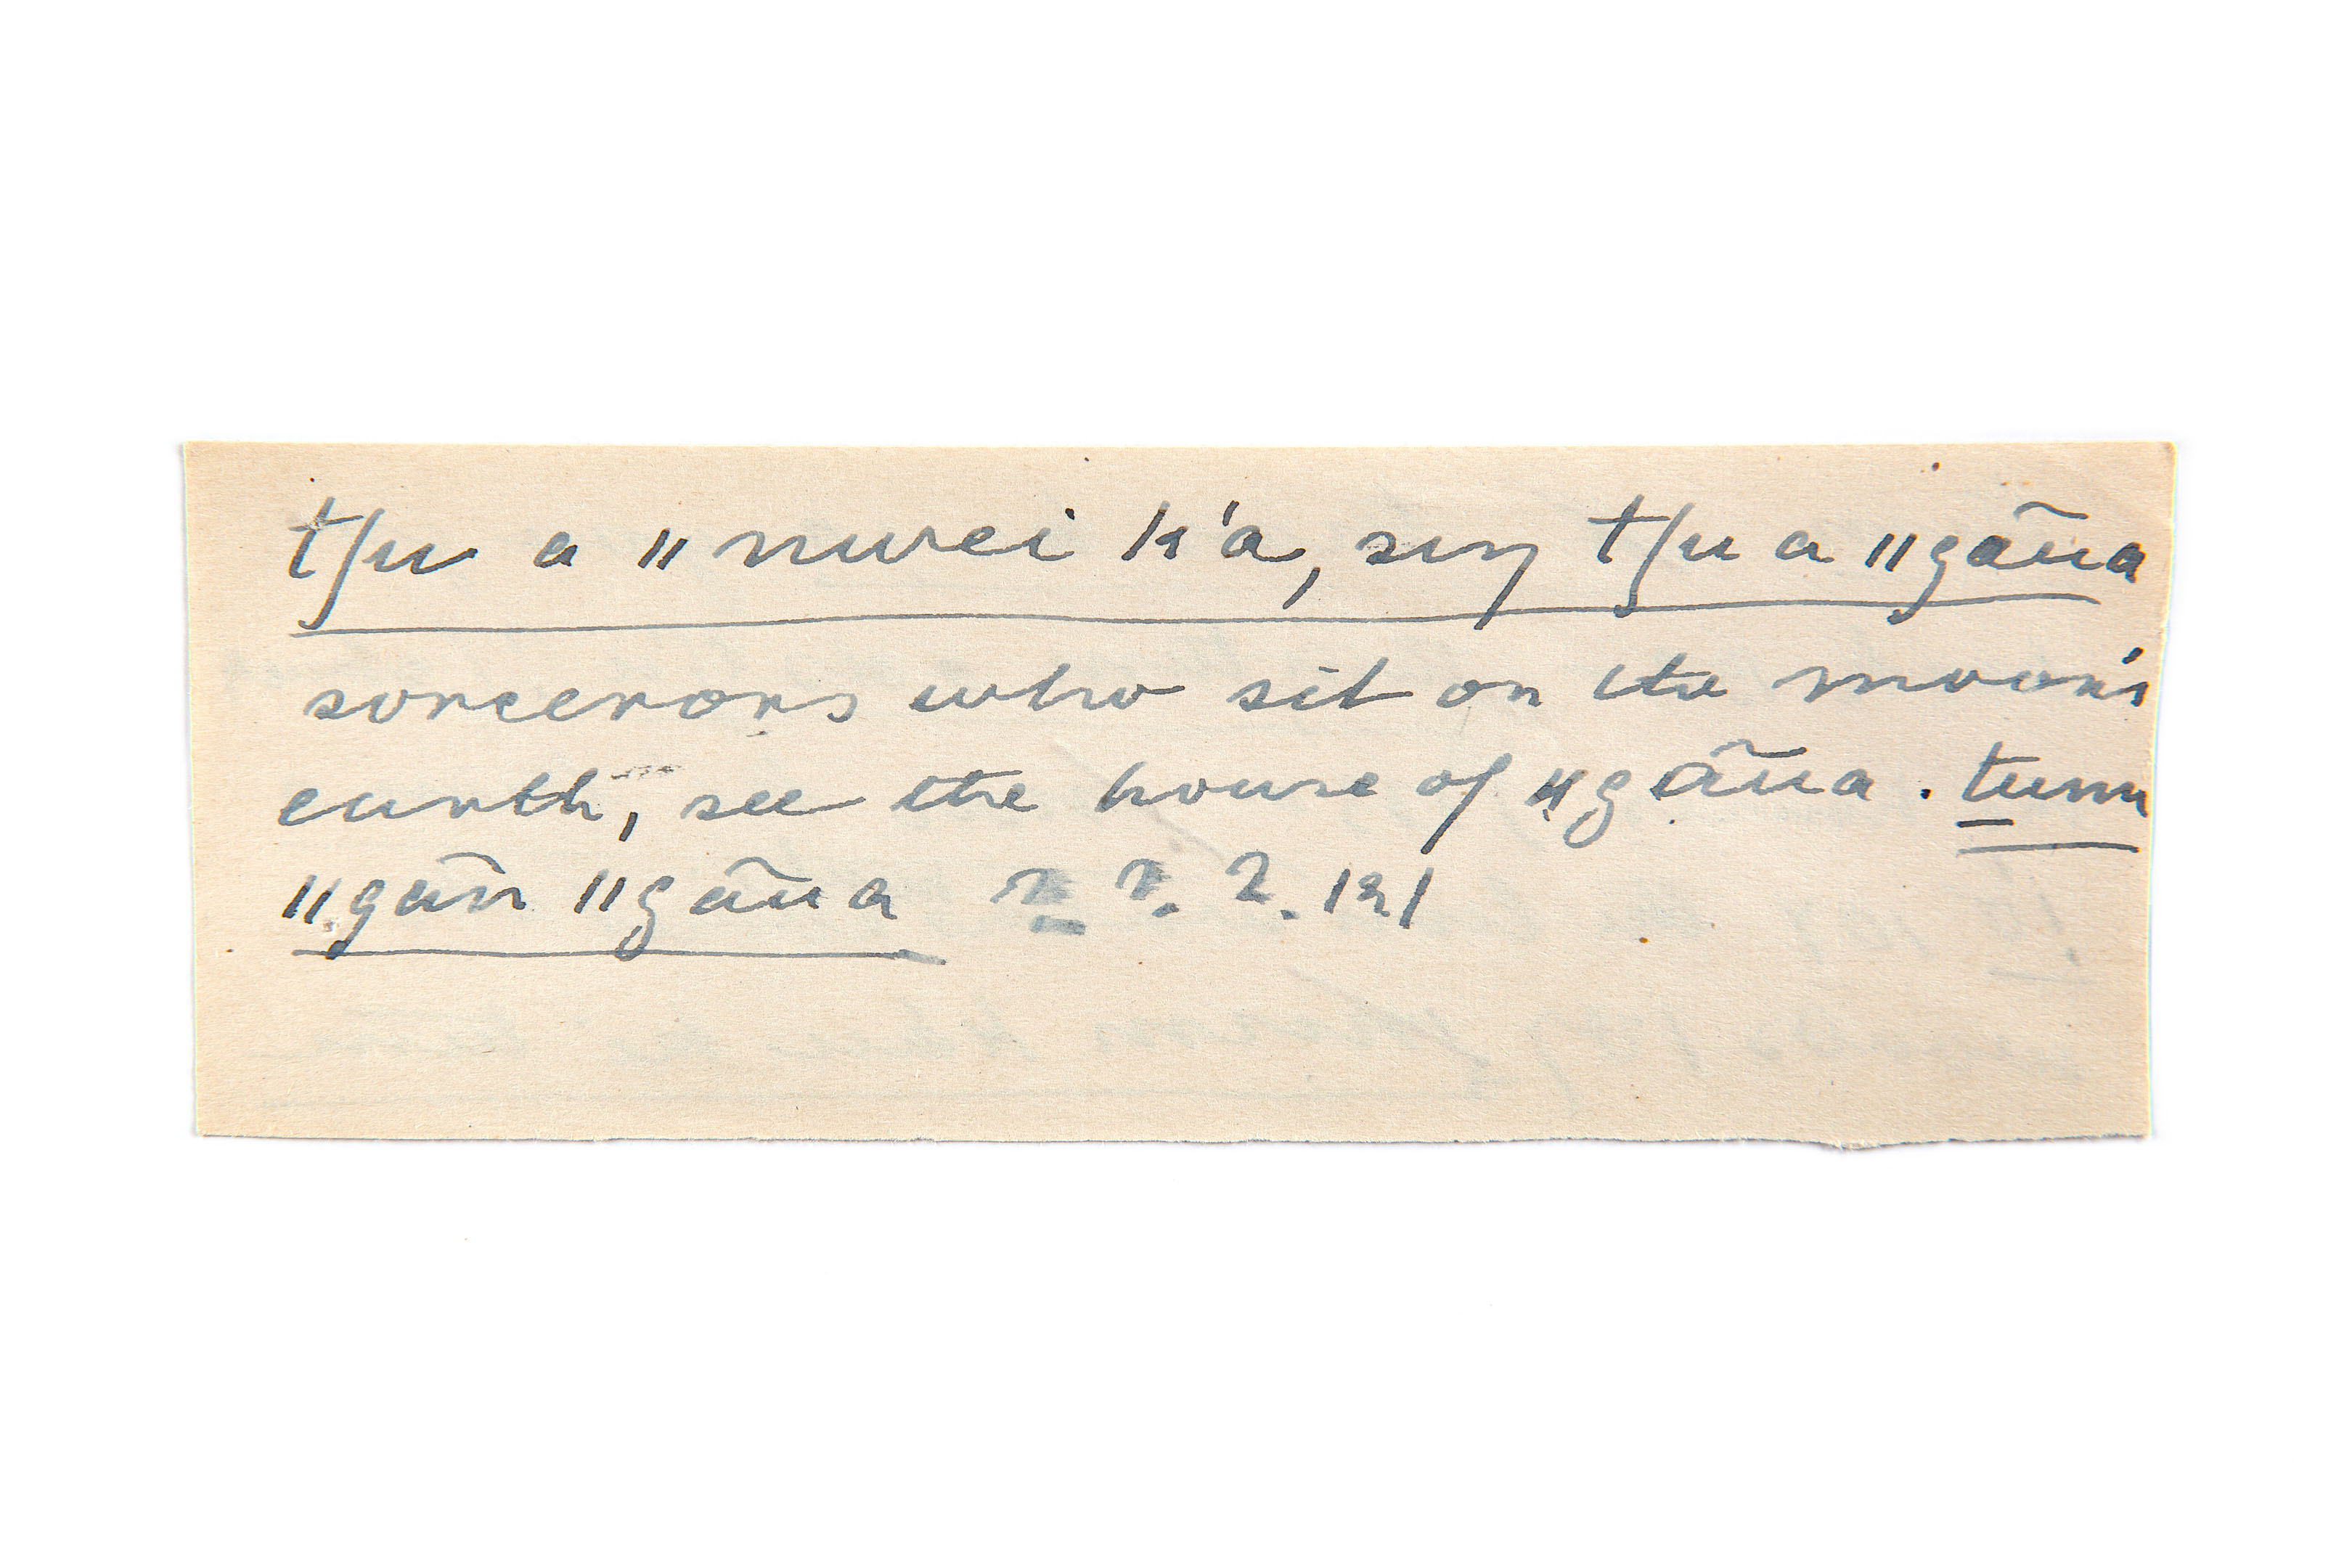 tʃu a ǁnwei k'a, siŋ tʃu a ǁgãũa
sorcerors who sit on the moon's
earth, see the house of ǁgãũa. tum
ǁgãn ǁgãũa